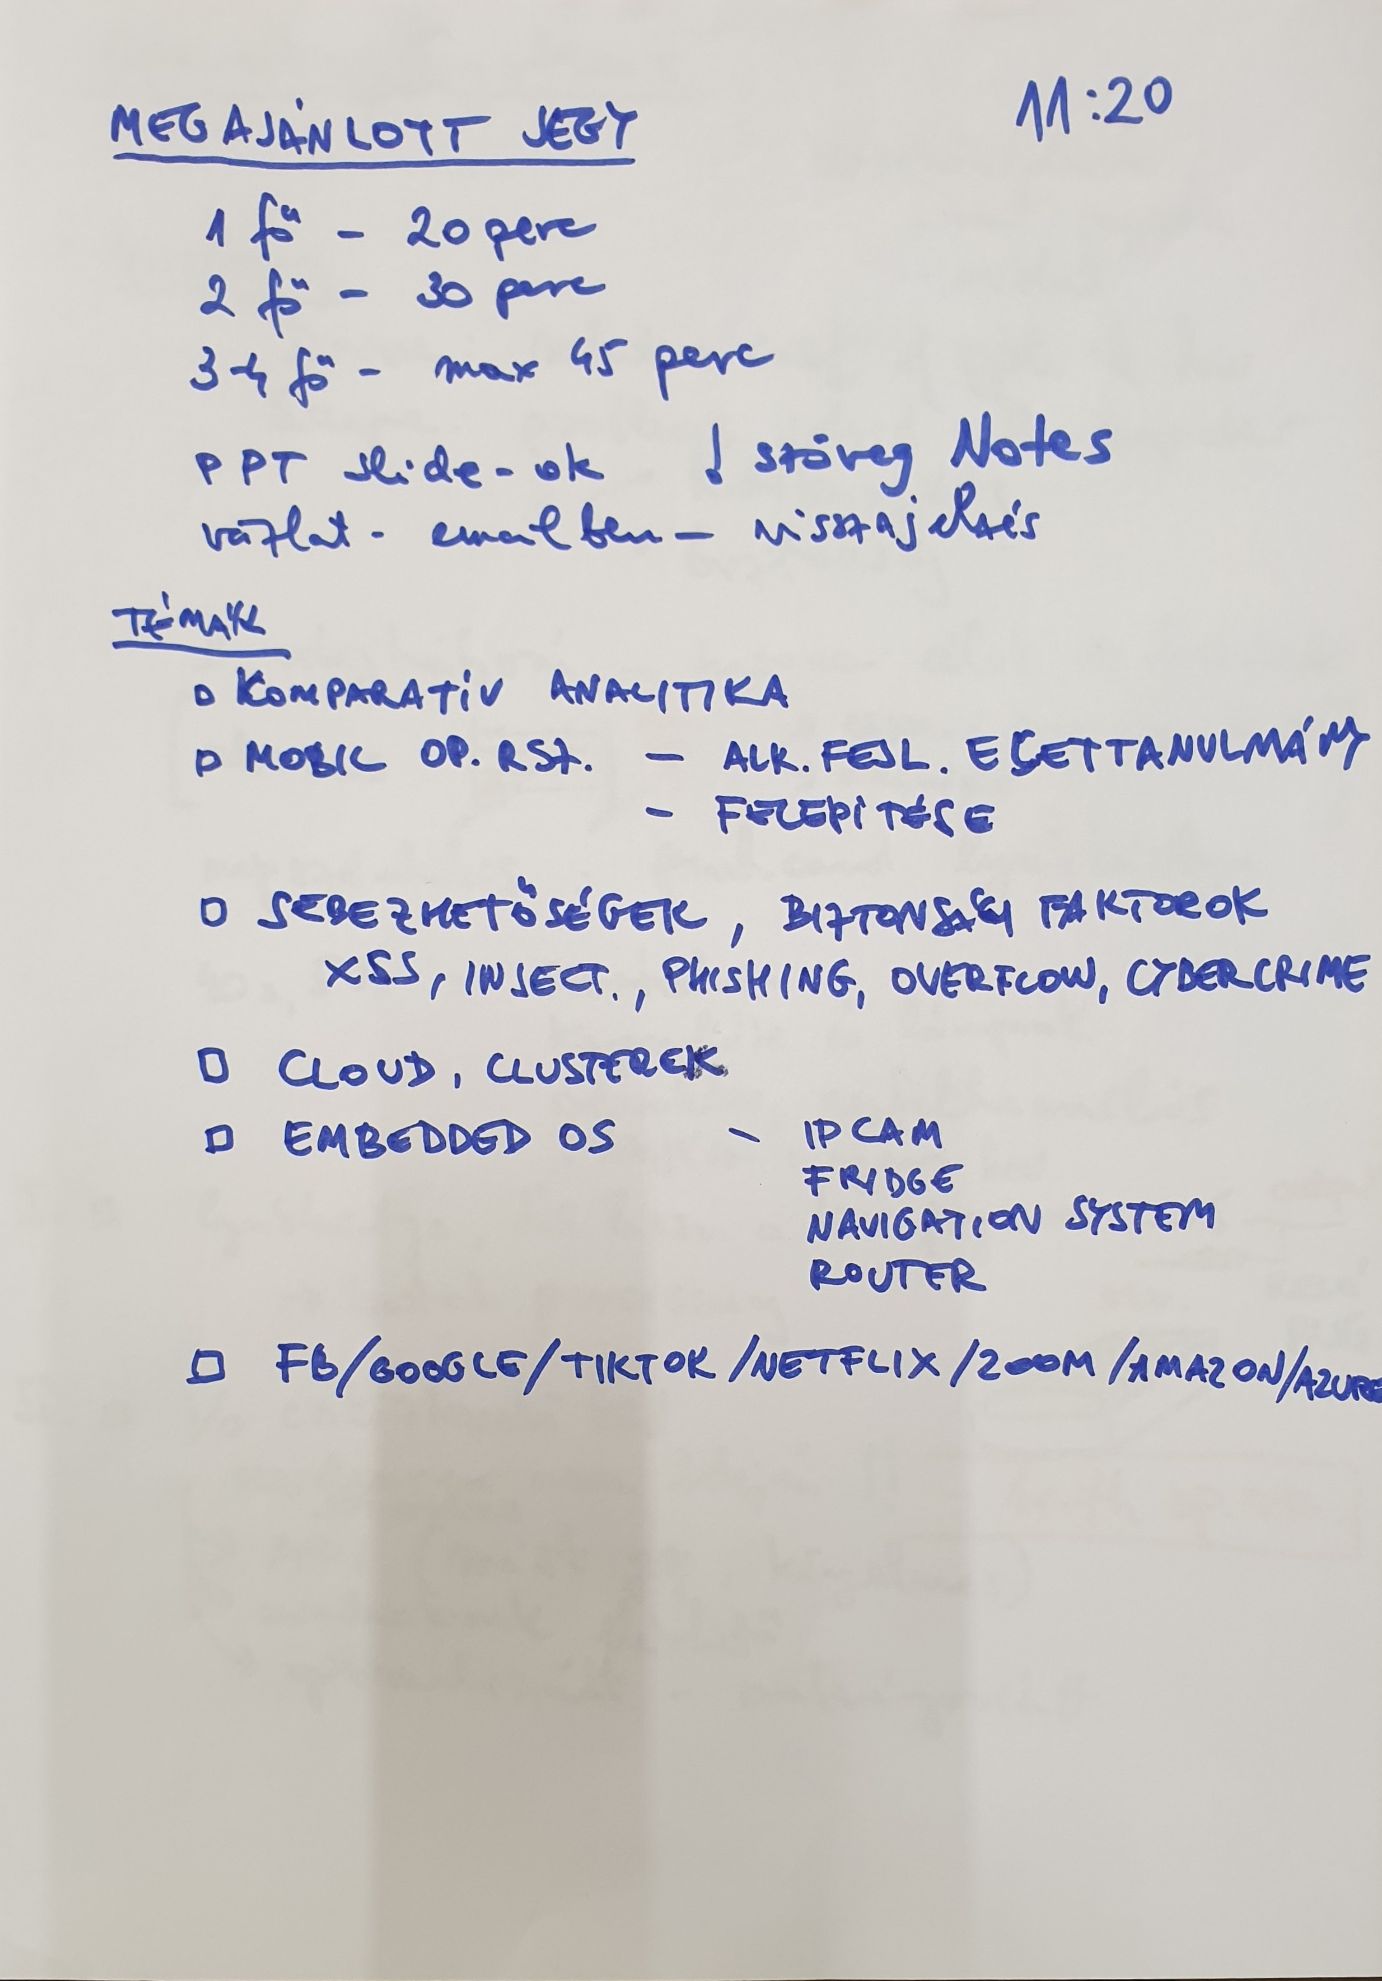 MEGAJÁNLOTT JEGY 11:20
1 fő - 20 perc
2 fő - 30 perc
3-4 fő - max 45 perc
PPT slide-ok ! szöveg Notes
vázlat - emailben - visszajelzés
TÉMÁK
□ KOMPARATÍV ANALITIKA
□ MOBIL OP. RSZ. - ALK. FEJL. ESETTANULMÁNY
- FELÉPÍTÉSE
□ SEBEZHETŐSÉGEK, BIZTONSÁGI FAKTOROK
XSS, INJECT., PHISHING, OVERFLOW, CYBERCRIME
□ CLOUD, CLUSTEREK
□ EMBEDDED OS - IPCAM
FRIDGE
NAVIGATION SYSTEM
ROUTER
□ FB/GOOGLE/TIKTOK/NETFLIX/ZOOM/AMAZON/AZURE